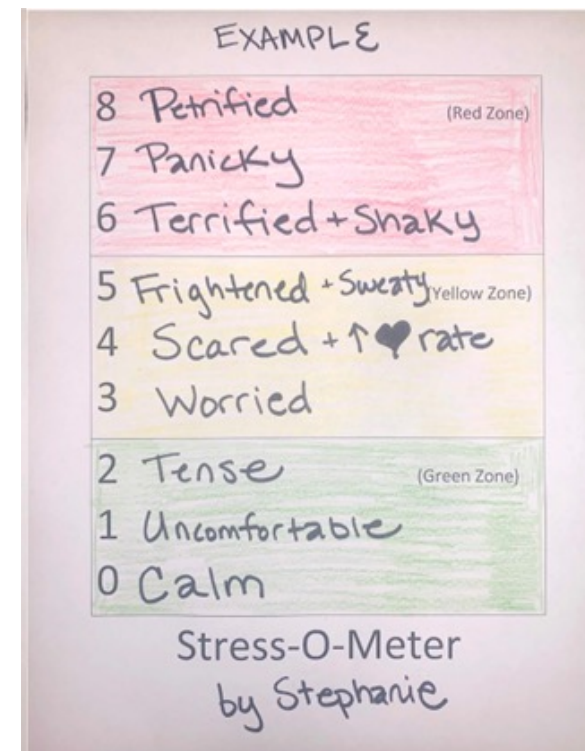 EXAMPLE
8 Petrified (Red Zone)
7 Panicky
6 Terrified + Shaky
5 Frightened + Sweaty (Yellow Zone)
4 Scared + ↑ ♥ rate
3 Worried
2 Tense (Green Zone)
1 Uncomfortable
0 Calm
Stress-O-Meter
by Stephanie